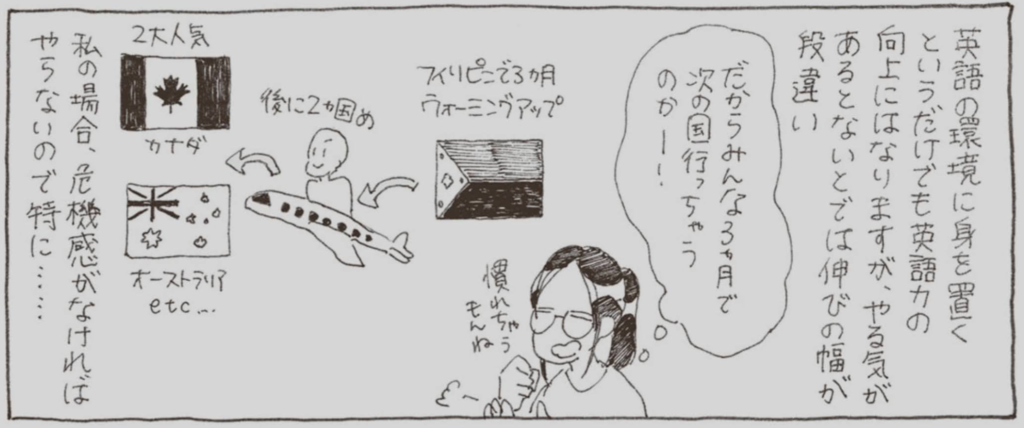 英語の環境に身を置く
というだけでも英語力の
向上にはなりますが、やる気が
あるとないとでは伸びの幅が
段違い
だからみんな3ヵ月で
次の国行っちゃう
のかー!
慣れちゃう
もんね
フィリピンで3ヵ月
ウォーミングアップ
後に2ヵ国め
2大人気
カナダ
オーストラリア
etc...
私の場合、危機感がなければ
やらないので特に……